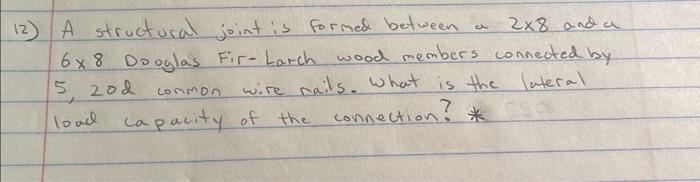 12) A structural joint is formed between a 2x8 and a
6x8 Douglas Fir-Larch wood members connected by
5, 20d common wire nails. What is the lateral
load capacity of the connection? *